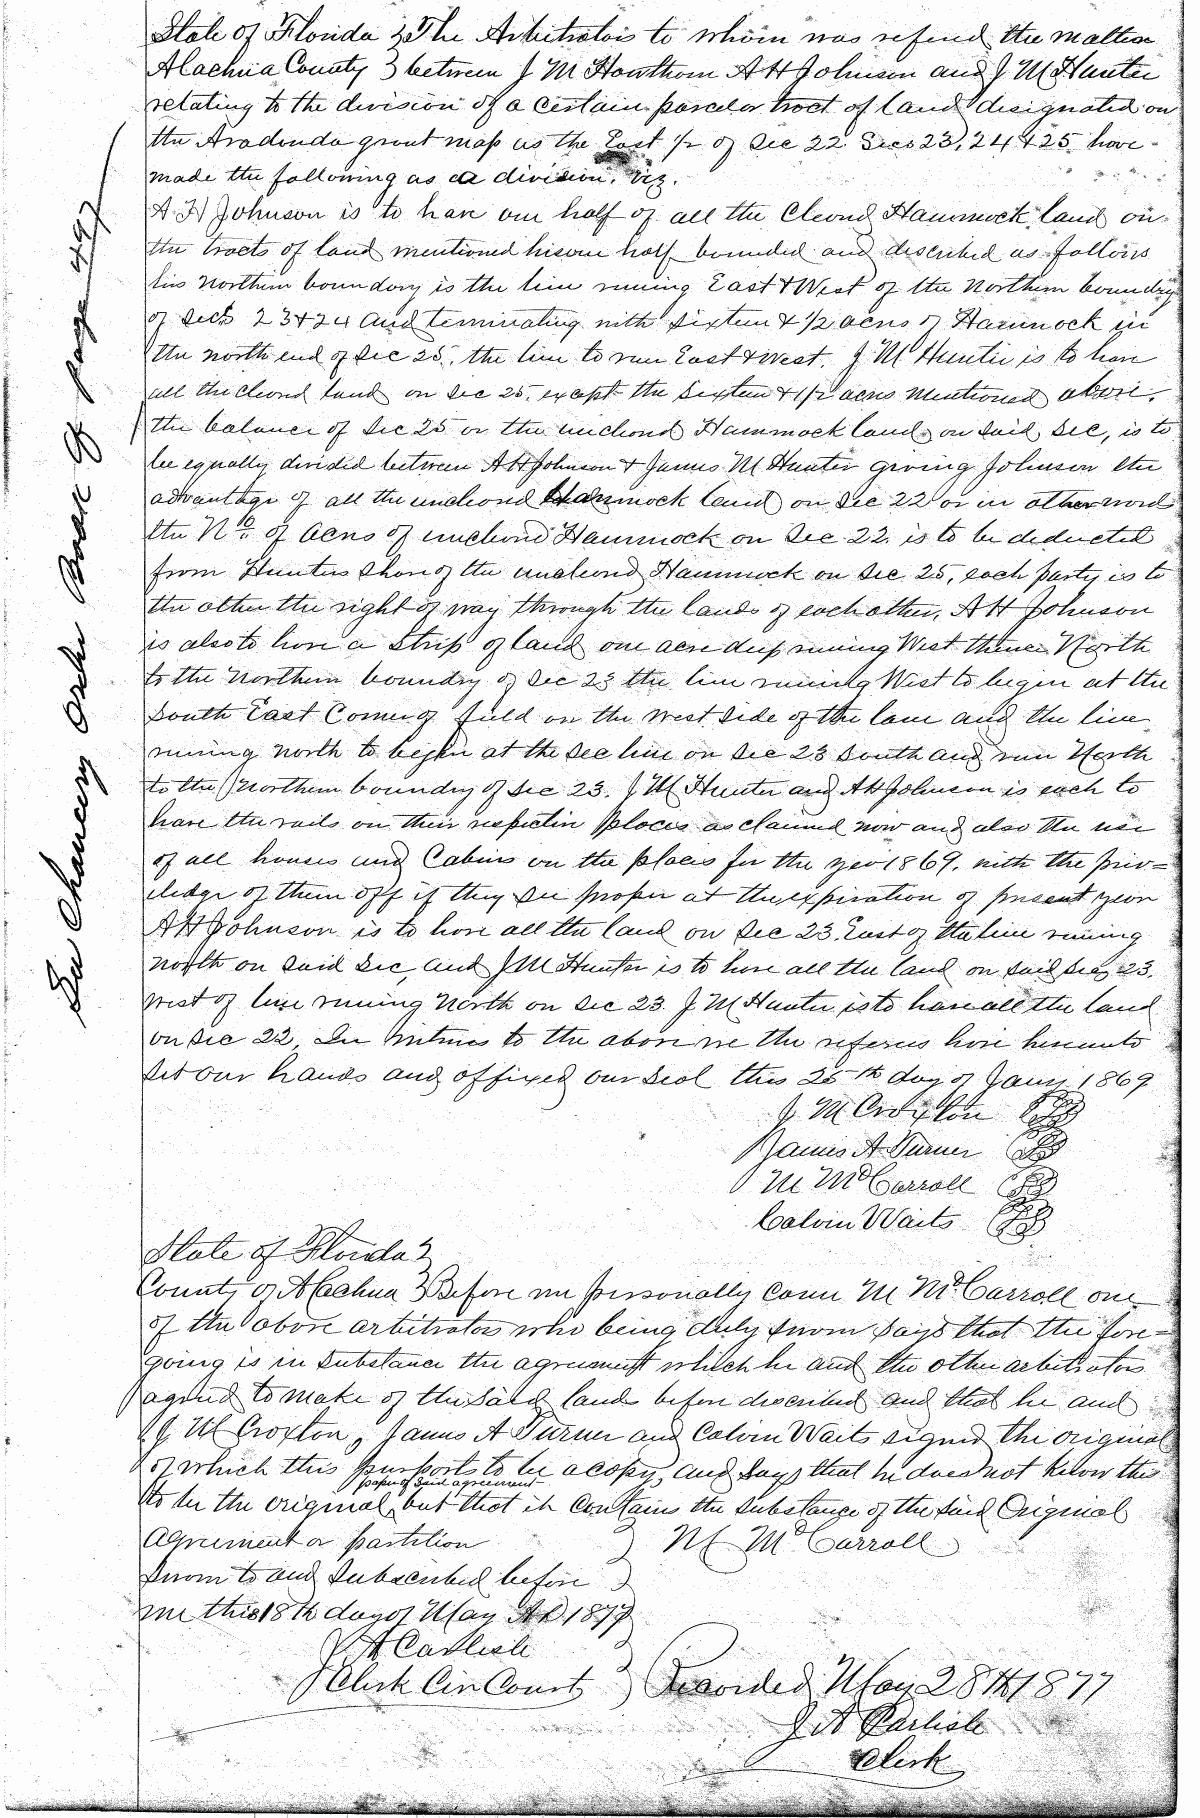 State of Florida } The Arbitrators to whom was refered the matter
Alachua County } between J M Hawthorn A H Johnson and J M Hunter
relating to the division of a certain parcel or tract of land designated on
the Aradonda grant map as the East 1/2 of Sec 22 Secs 23, 24 & 25 have
made the following as a division. viz.
A H Johnson is to have one half of all the Cleared Hammock land on
the tracts of land mentioned his one half bounded and described as follows
his Northern boundary is the line runing East & West of the Northern boundry
of Secs 23 & 24 and terminating with Sixteen & 1/2 acres of Hammock in
the north end of Sec 25, the line to run East & West. J M Hunter is to have
all the cleared land on Sec 25, except the Sixteen & 1/2 acres mentioned above,
the balance of Sec 25 or the uncleared Hammock land on said Sec, is to
be equally divided between A H Johnson & James M Hunter giving Johnson the
advantage of all the uncleared Hammock land on Sec 22 or in other words
the No. of acres of uncleared Hammock on Sec 22. is to be deducted
from Hunters Share of the uncleared Hammock on Sec 25, each party is to
the other the right of way through the lands of each other. A H Johnson
is also to have a Strip of land one acre deep runing West thence North
to the Northern boundry of Sec 23 the line runing West to begin at the
South East Corner of field on the West Side of the lane and the line
runing north to begin at the Sec line on Sec 23 South and run North
to the Northern boundry of Sec 23. J M Hunter and A H Johnson is each to
have the rails on their respective places as claimed now and also the use
of all houses and Cabins on the places for the year 1869. with the priv=
iledge of them off if they see proper at the expiration of present year
A H Johnson is to have all the land on Sec 23. East of the line runing
north on said Sec, and J M Hunter is to have all the land on said Sec 23.
West of line runing North on Sec 23. J M Hunter is to have all the land
on Sec 22, In witness to the above we the referees have hereunto
Set our hands and affixed our Seal this 25th day of Jany 1869
J M Croxton
James A Turner
M McCarroll
Calvin Waits
State of Florida }
County of Alachua } Before me personally came M McCarroll one
of the above arbitrators who being duly sworn says that the fore=
going is in substance the agreement which he and the other arbitrators
agreed to make of the said lands before described and that he and
J M Croxton, James A Turner and Calvin Waits signed the original
of which this purports to be a copy, and says that he does not know this
paper of said agreement
to be the original, but that it contains the substance of the said Original
Agreement or partition } M McCarroll
Sworn to and Subscribed before }
me this 18th day of May AD 1877 }
J A Carlisle
Clerk Cir Court } Recorded May 28th 1877
J A Carlisle
Clerk
See Chancery Order Book Of page 497